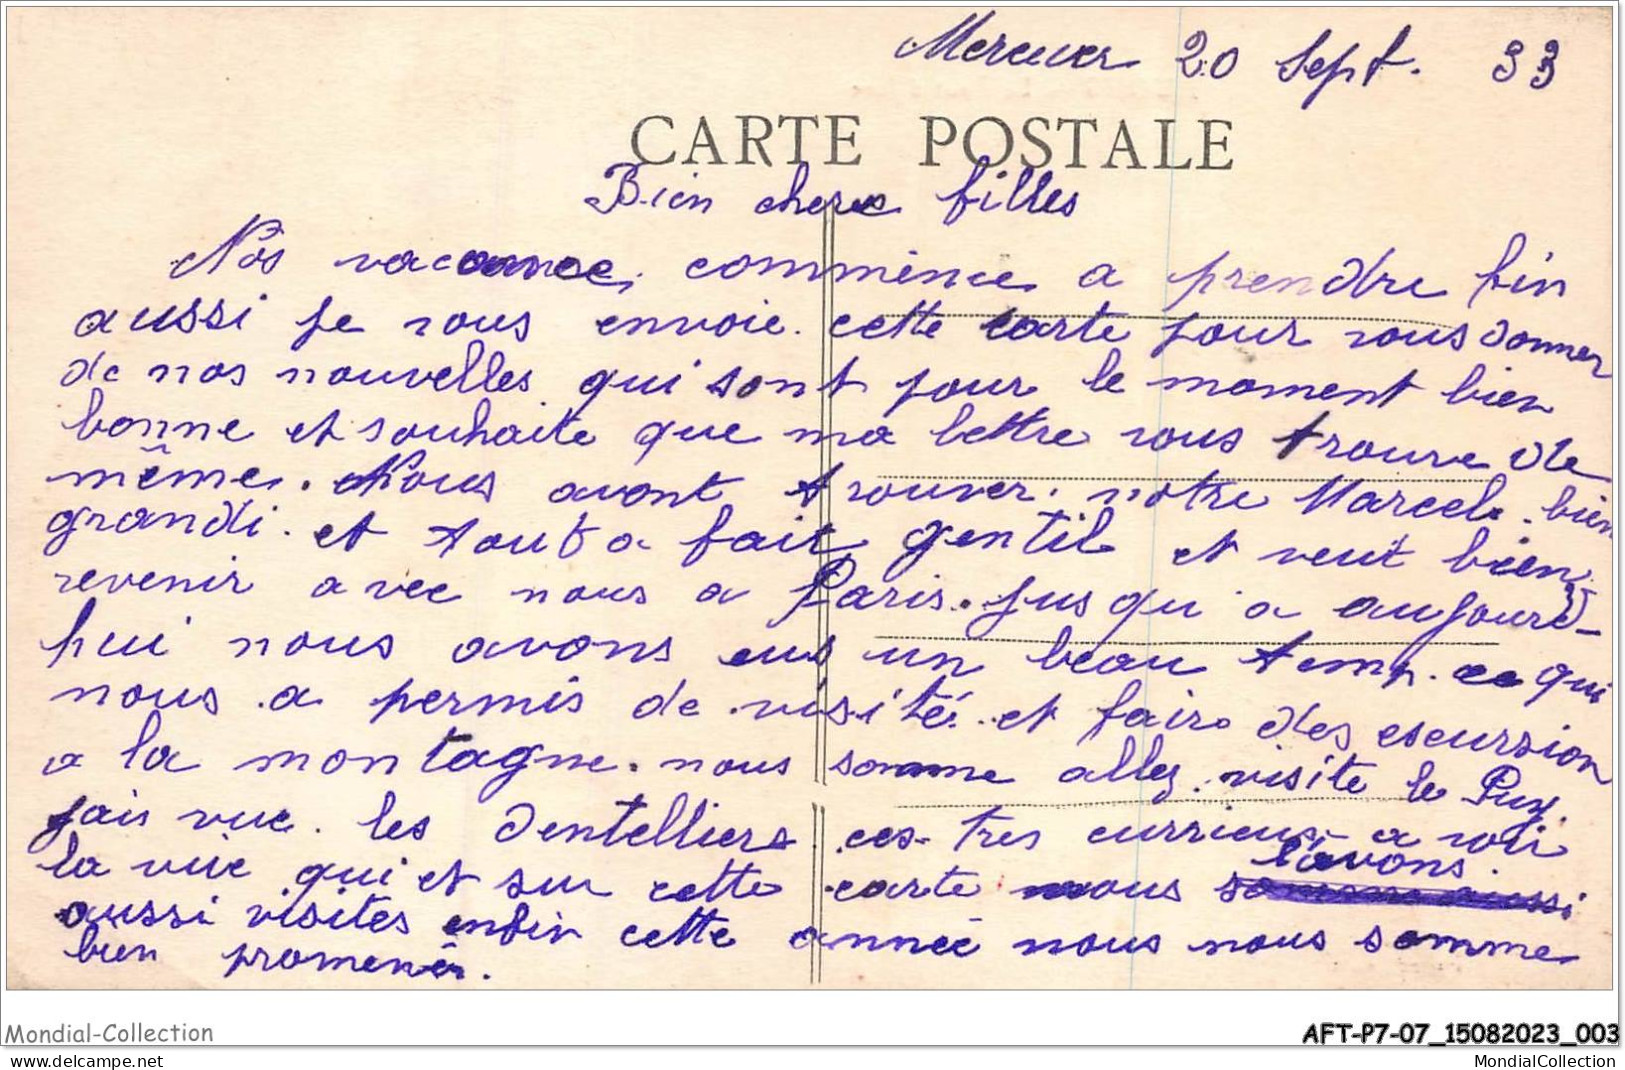 Mercuer 20 Sept. 33
CARTE POSTALE
Bien cheres filles
Nos vacance commence a prendre fin
aussi je vous envoie cette carte pour vous donner
de nos nouvelles qui sont pour le moment bien
bonne et souhaite que ma lettre vous trouve de
même. Nous avont trouver notre Marcel bien
grandi. et tout a fait gentil et veut bien
revenir avec nous a Paris. jusqu'a aujourd-
hui nous avons eus un beau temp. ce qui
nous a permis de visité et faire des escursion
a la montagne. nous somme allez visite le Puy.
jais vue les dentelliers ces tres currieux a voir
la vue qui et sur cette carte nous l'avons
aussi visites enfin cette année nous nous somme
bien promener.
Mondial-Collection
AFT-P7-07_15082023_003
www.delcampe.net
MondialCollection